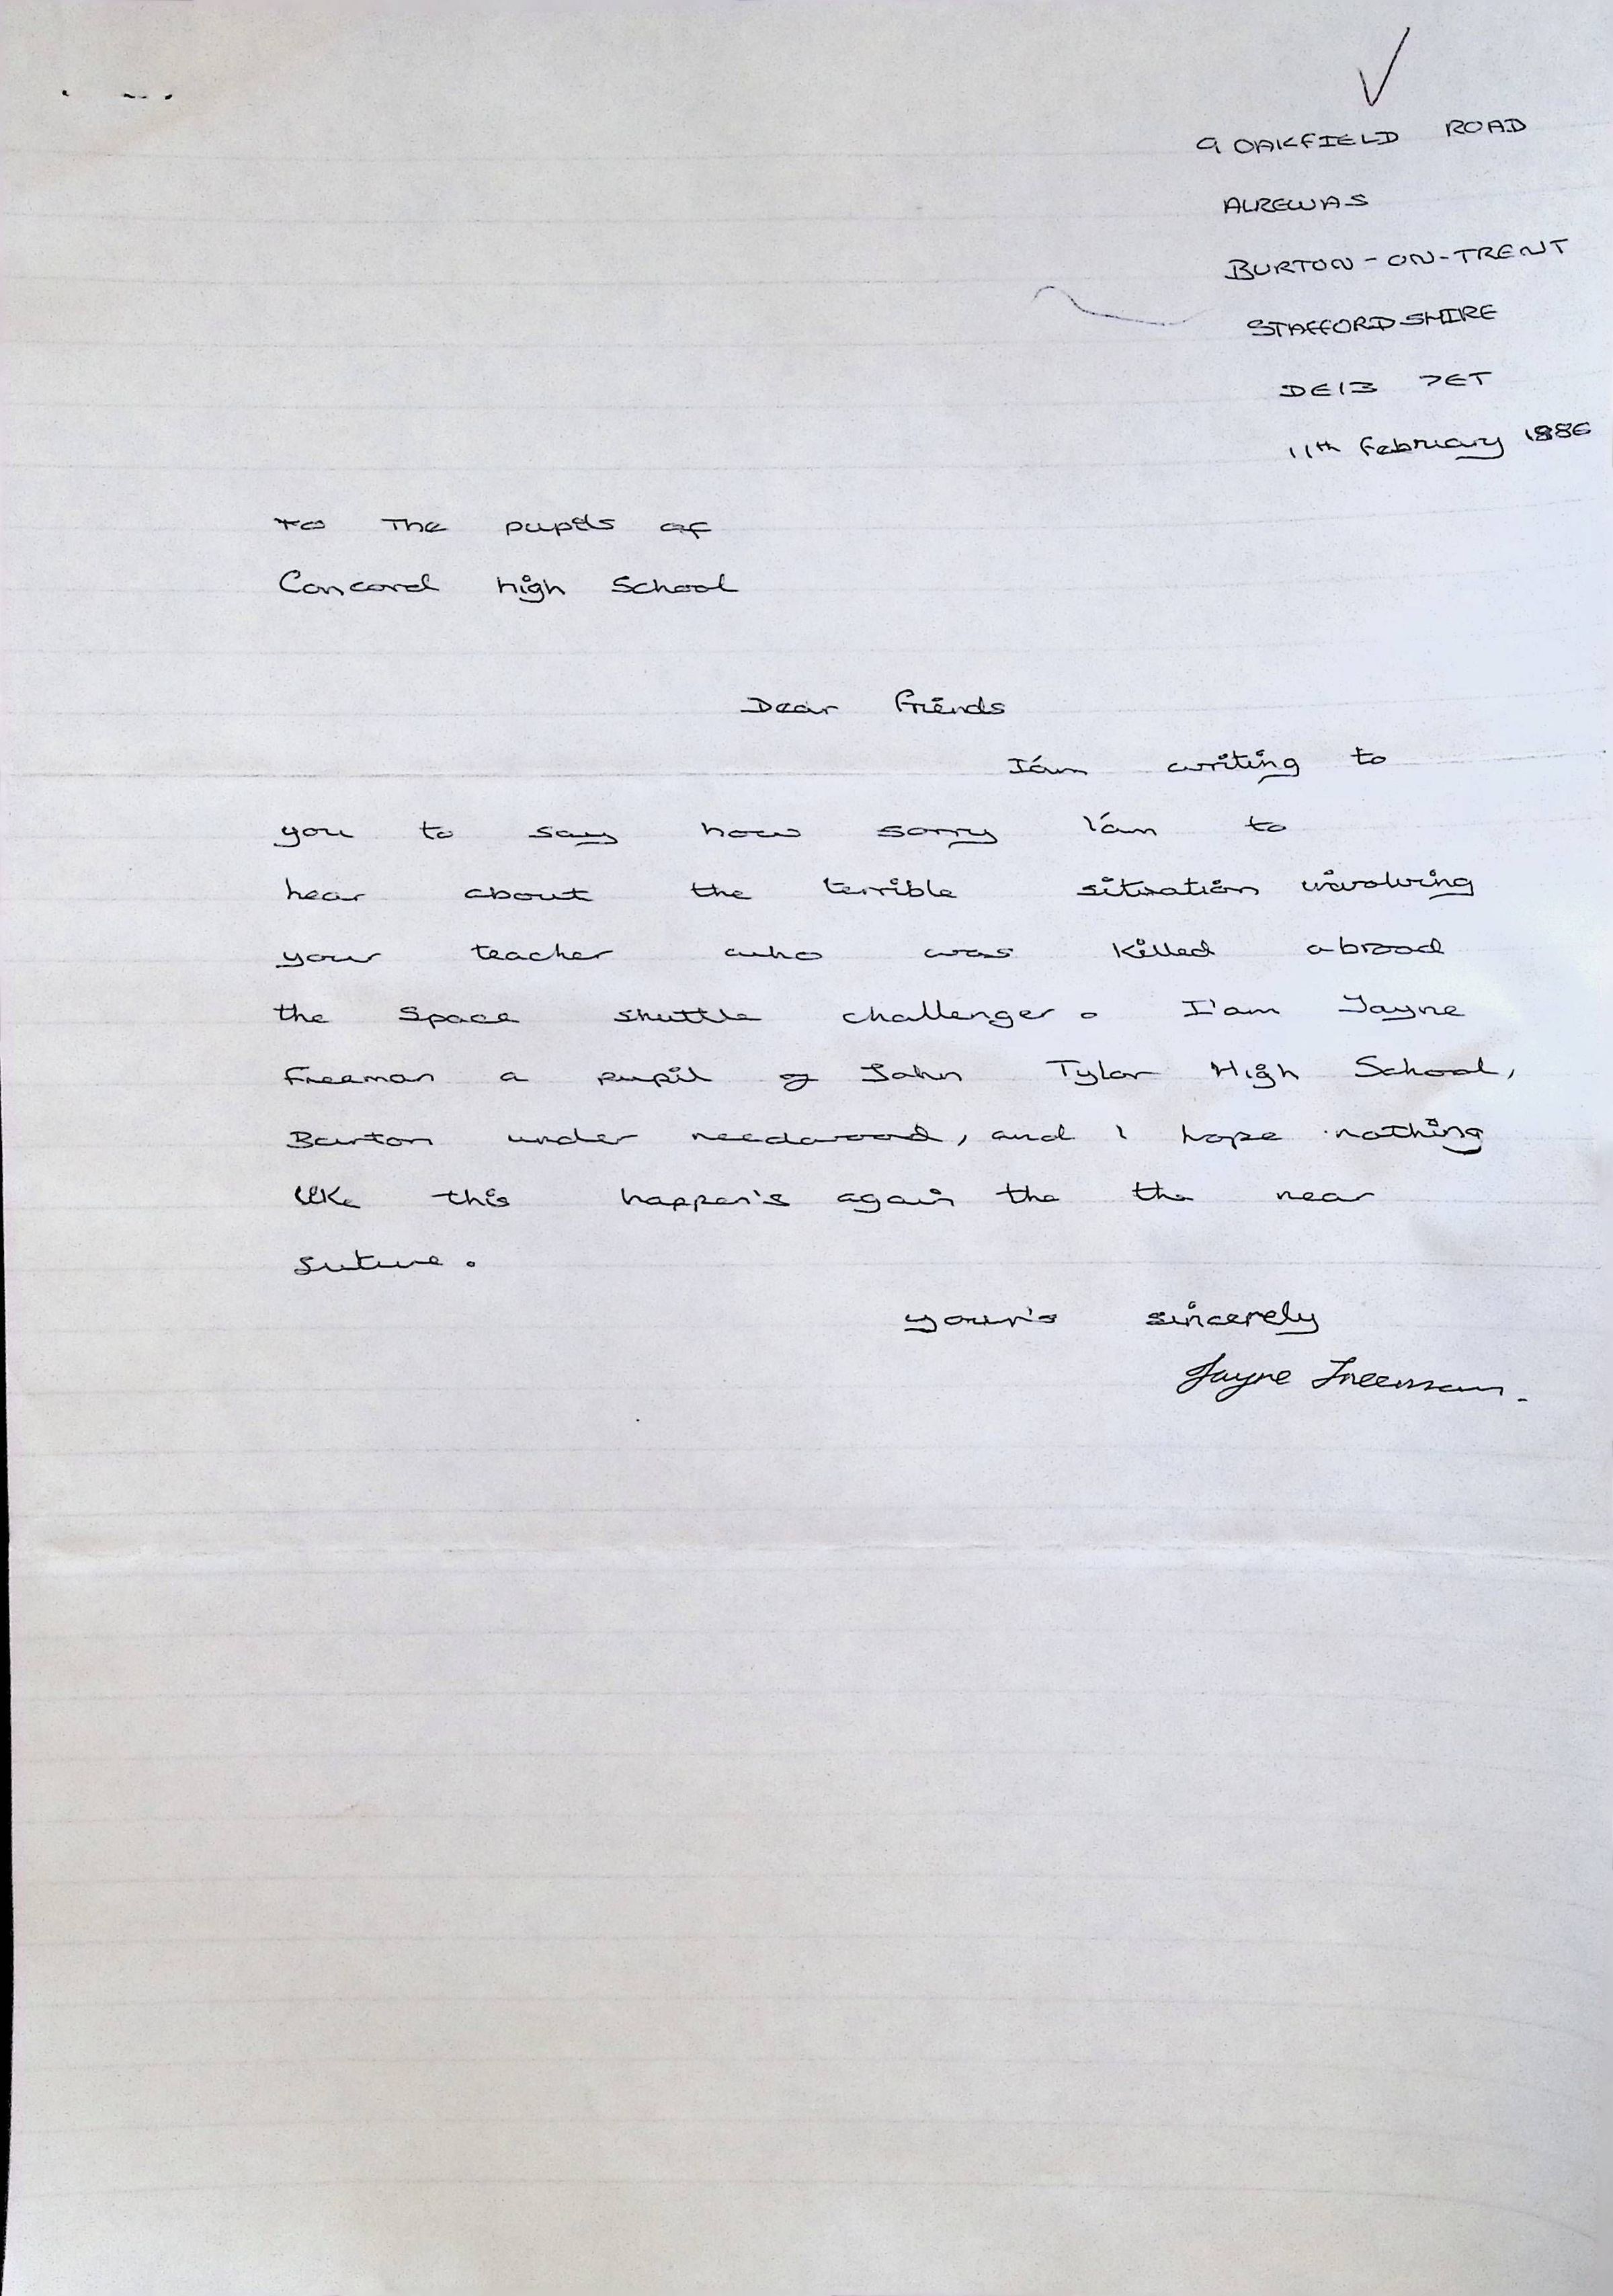 9 OAKFIELD ROAD
ALREWAS
BURTON-ON-TRENT
STAFFORDSHIRE
DE13 7ET
11th February 1986
To The pupils of
Concord high School
Dear friends
I'am writing to
you to say how sorry I'am to
hear about the terrible situation involving
your teacher who was killed abroad
the Space shuttle challenger. I'am Jayne
Freeman a pupil of John Tylor High School,
Barton under needwood, and I hope nothing
like this happen's again the the near
future.
your's sincerely
Jayne Freeman.